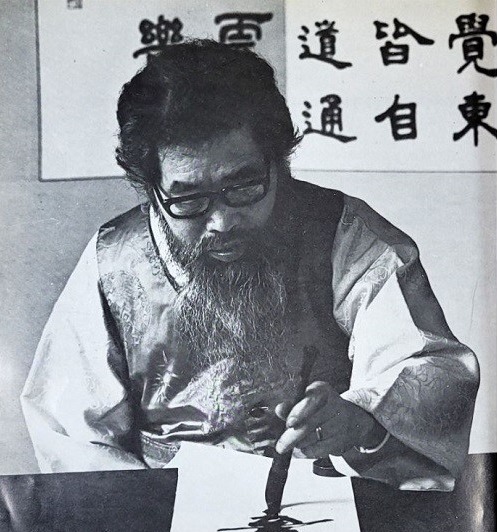 覺東
皆自
道通
雲
樂